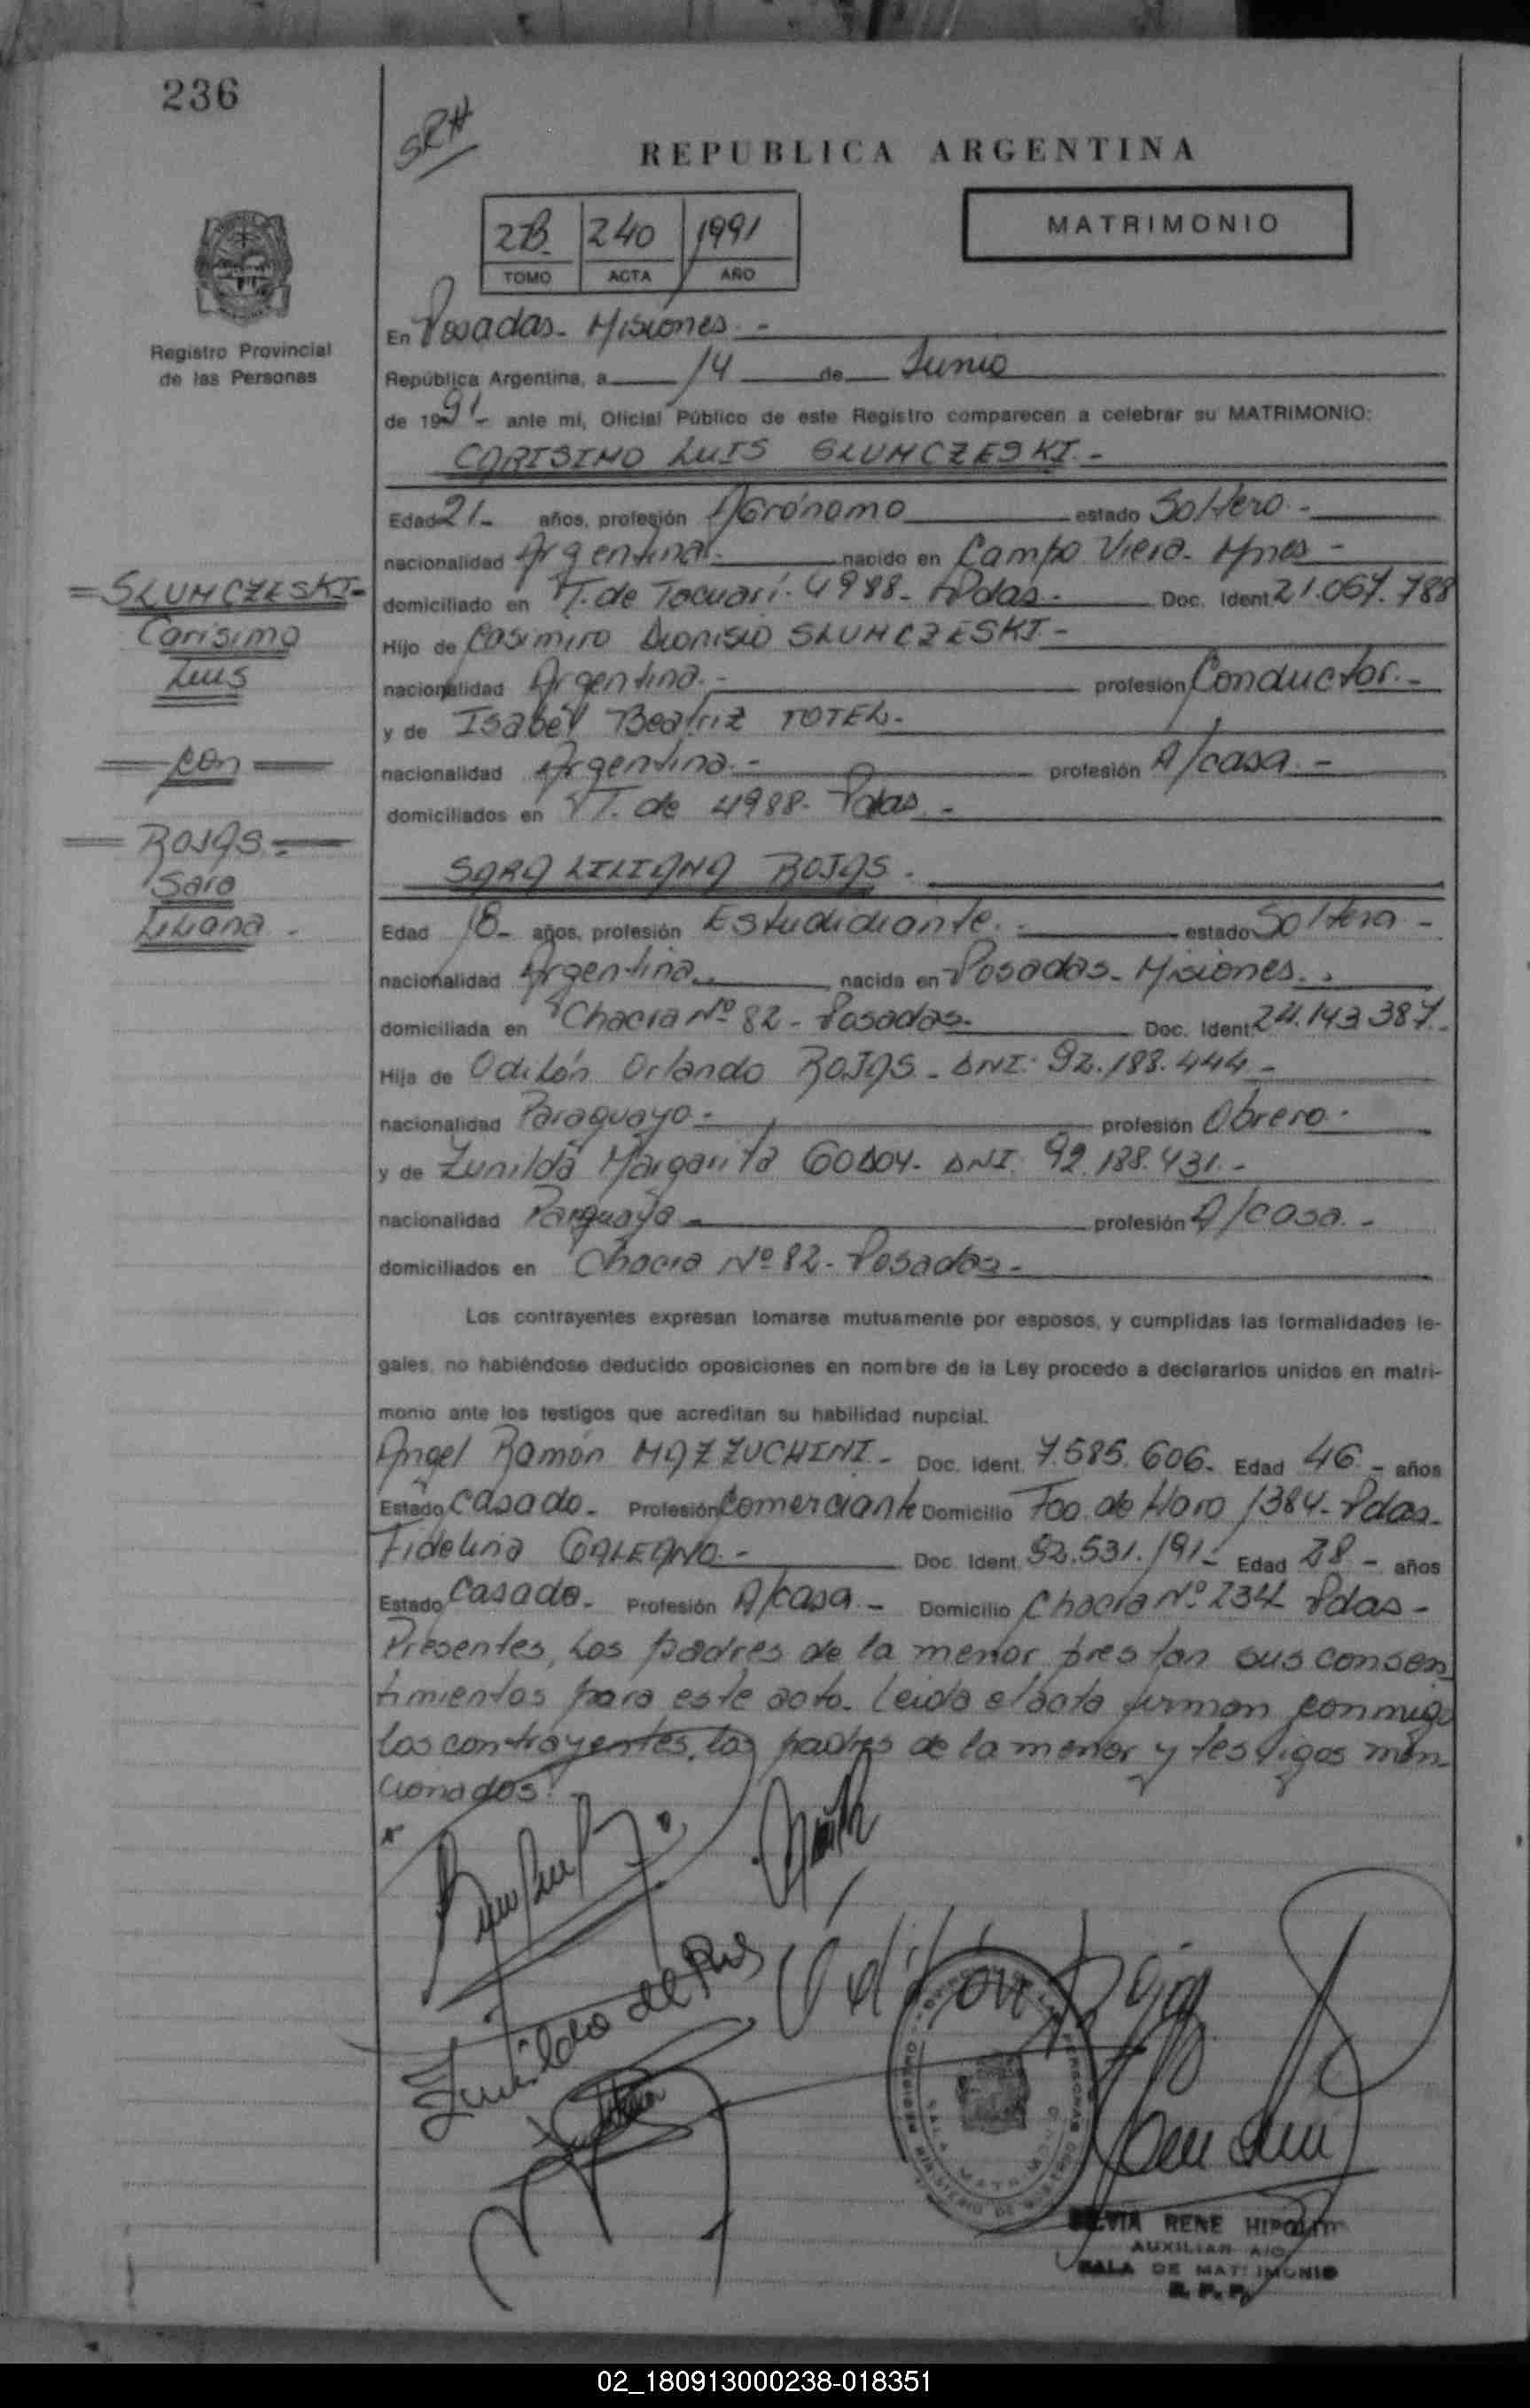 236
SRH
REPUBLICA ARGENTINA
2B. 240 1991
TOMO ACTA AÑO
MATRIMONIO
Registro Provincial
de las Personas
En Posadas - Misiones -
República Argentina, a 14 de Junio
de 1991 - ante mí, Oficial Público de este Registro comparecen a celebrar su MATRIMONIO:
CARISIMO LUIS SLUMCZESKI. -
Edad 21 - años, profesión Agrónomo estado Soltero. -
nacionalidad Argentina. nacido en Campo Viera - Mnes -
domiciliado en T. de Tacuarí. 4988 - Pdas. Doc. Ident 21.067.788
Hijo de Casimiro Dionisio SLUMCZESKI -
nacionalidad Argentina. - profesión Conductor. -
y de Isabel Beatriz TOTEL. -
nacionalidad Argentina. - profesión A/casa. -
domiciliados en T. de 4988 - Pdas. -
SLUMCZESKI-
Carisimo
Luis
con
ROJAS -
Sara
Liliana -
SARA LILIANA ROJAS.
Edad 18 - años, profesión Estudidiante. - estado Soltera -
nacionalidad Argentina nacida en Posadas - Misiones.
domiciliada en Chacra Nº 82 - Posadas - Doc. Ident. 24.143.387 -
Hija de Odilón Orlando ROJAS - DNI: 92.188.444 -
nacionalidad Paraguayo - profesión Obrero -
y de Zunilda Margarita GODOY - DNI: 92.188.431. -
nacionalidad Paraguaya - profesión A/casa. -
domiciliados en Chacra Nº 82 - Posadas -
Los contrayentes expresan tomarse mutuamente por esposos, y cumplidas las formalidades le-
gales, no habiéndose deducido oposiciones en nombre de la Ley procedo a declararlos unidos en matri-
monio ante los testigos que acreditan su habilidad nupcial.
Angel Ramón MAZZUCHINI - Doc. Ident. 7.585.606 - Edad 46 - años
Estado Casado - Profesión Comerciante Domicilio Fco. de Haro 1384 - Pdas -
Fidelina GALEANO. - Doc. Ident. 92.531.191 - Edad 28 - años
Estado Casada - Profesión A/casa - Domicilio Chacra Nº 234 Pdas -
Presentes, los padres de la menor prestan sus consen
timientos para este acto. Leida el acta firman conmigo
los contrayentes, los padres de la menor y testigos men
cionados.
Zunilda de
Odilón Rojas
SILVIA RENE HIPOLITO
AUXILIAR A/C
SALA DE MATRIMONIO
R. P. P.
02_180913000238-018351